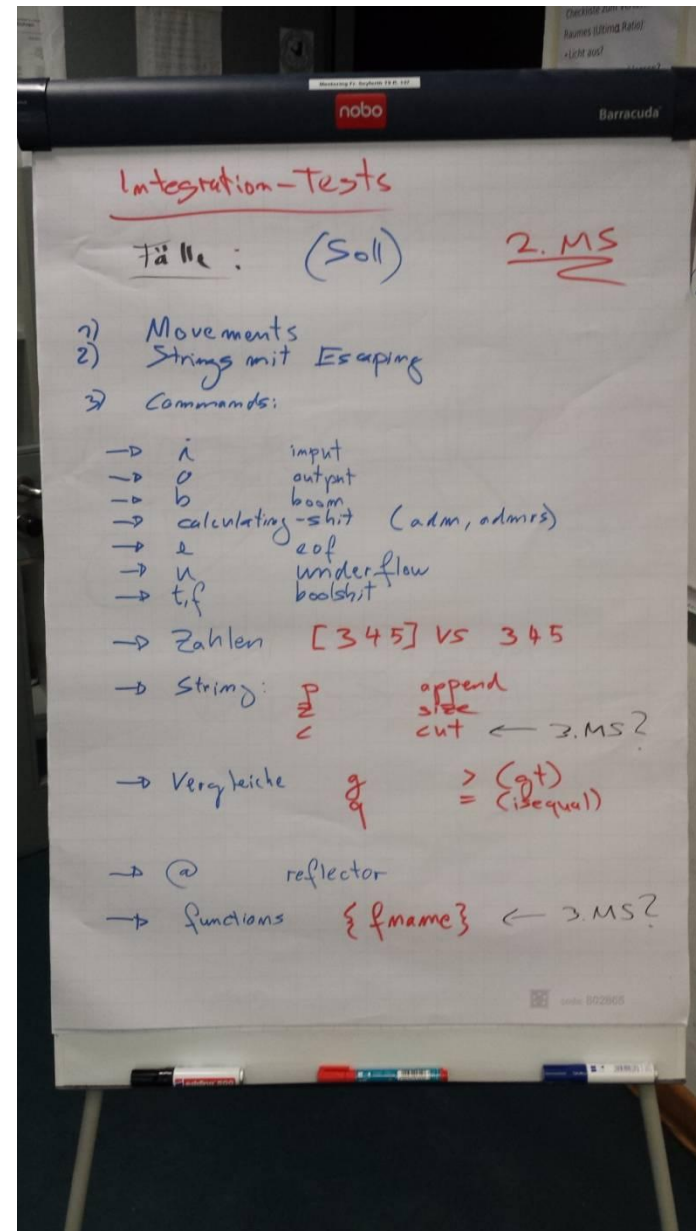 Raumes (Ultima Ratio):
•Licht aus?
nobo
Barracuda
Integration-Tests
Fälle: (Soll) 2. MS
1) Movements
2) Strings mit Escaping
3) Commands:
→ i input
→ o output
→ b boom
→ calculating-shit (adm, admrs)
→ e eof
→ u underflow
→ t,f boolshit
→ Zahlen [345] vs 345
→ String: p append
z size
c cut ← 3.MS?
→ Vergleiche g > (gt)
q = (isequal)
→ @ reflector
→ functions {fname} ← 3.MS?